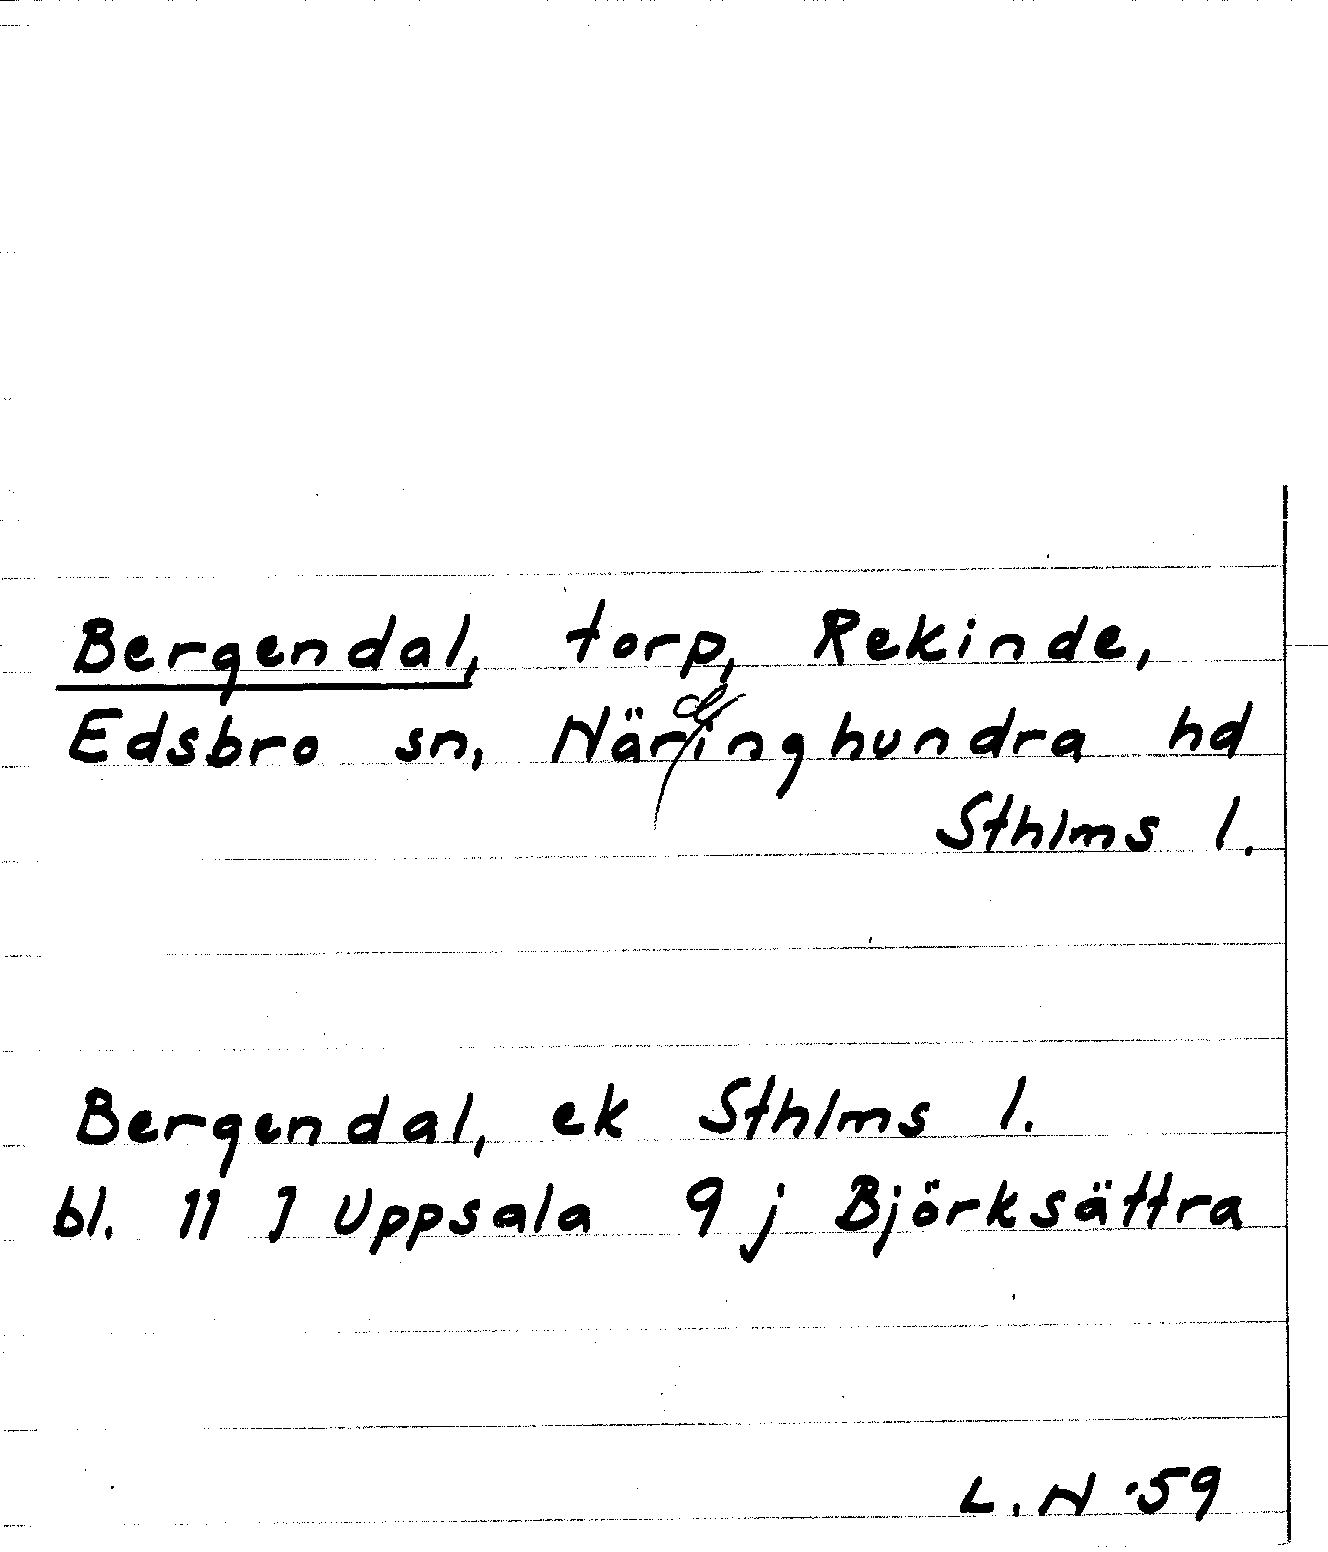 Bergendal, torp, Rekinde,
Edsbro sn, Närdinghundra hd
Sthlms l.
Bergendal, ek Sthlms l.
bl. 11 I Uppsala 9 j Björksättra
L. N -59